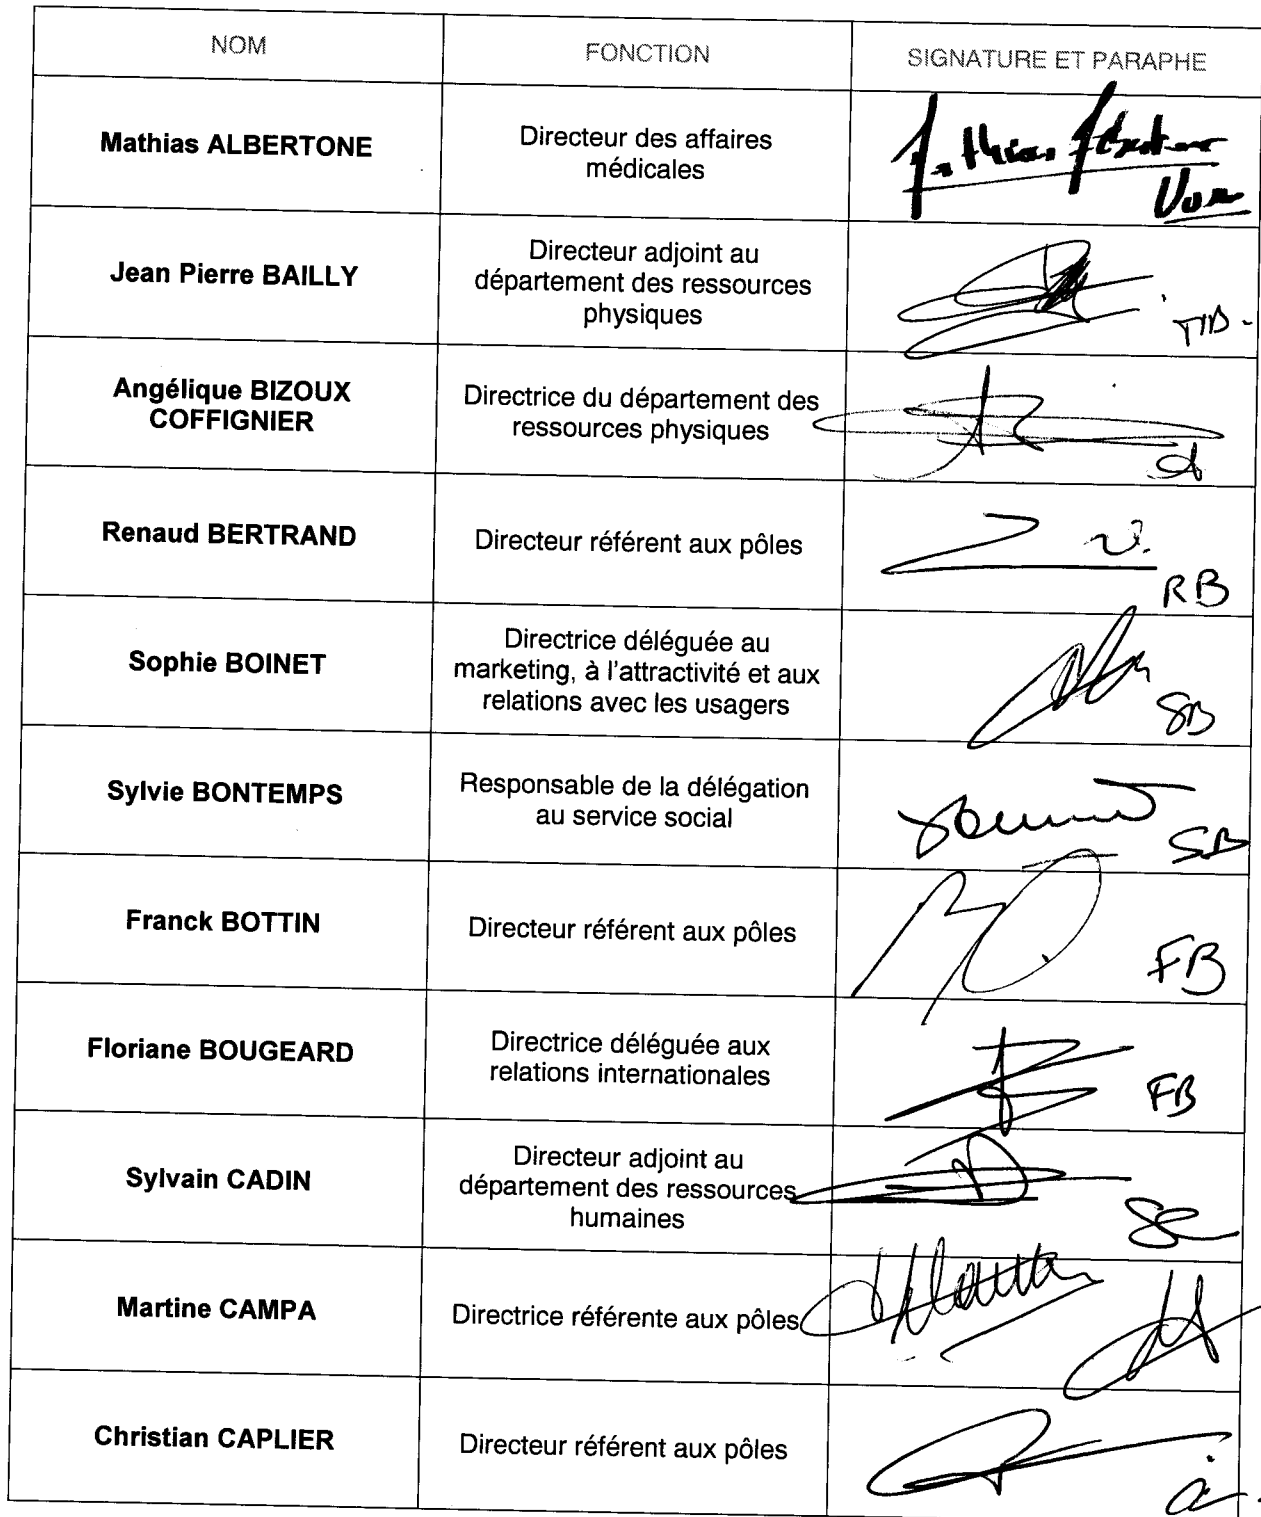 NOM FONCTION SIGNATURE ET PARAPHE
Mathias ALBERTONE
Directeur des affaires
médicales
Jean Pierre BAILLY
Directeur adjoint au
département des ressources
physiques
Angélique BIZOUX
COFFIGNIER
Directrice du département des
ressources physiques
Renaud BERTRAND
Directeur référent aux pôles
RB
Sophie BOINET
Directrice déléguée au
marketing, à l'attractivité et aux
relations avec les usagers
SB
Sylvie BONTEMPS
Responsable de la délégation
au service social
SB
Franck BOTTIN
Directeur référent aux pôles
FB
Floriane BOUGEARD
Directrice déléguée aux
relations internationales
FB
Sylvain CADIN
Directeur adjoint au
département des ressources
humaines
SC
Martine CAMPA
Directrice référente aux pôles
Christian CAPLIER
Directeur référent aux pôles